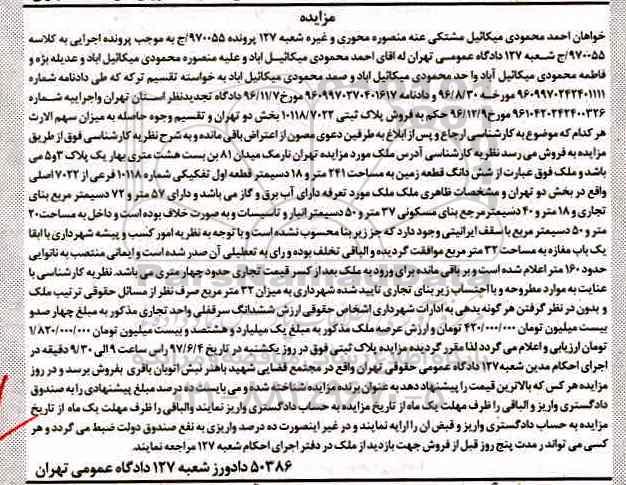 مزایده
خواهان احمد محمودی میکائیل مشتکی عنه منصوره محوری و غیره شعبه ۱۲۷ پرونده ۹۷۰۰۵۵/ج به موجب پرونده اجرایی به کلاسه
۹۷۰۰۵۵/ج شعبه ۱۲۷ دادگاه عمومی تهران له اقای احمد محمودی میکائیل اباد و علیه منصوره محمودی میکائیل اباد و عدیله بژه و
فاطمه محمودی میکائیل آباد واحد محمودی میکائیل اباد و صمد محمودی میکائیل اباد به خواسته تقسیم ترکه که طی دادنامه شماره
۹۶۰۹۹۷۰۲۴۲۴۰۱۱۱۱ مورخه ۹۶/۸/۳۰ و دادنامه ۹۶۰۹۹۷۰۳۷۰۴۰۱۶۱۷ مورخ ۹۶/۱۱/۷ دادگاه تجدیدنظر استان تهران واجراییه شماره
۹۶۱۰۴۲۰۲۴۲۴۰۰۳۲۶ مورخ ۹۶/۱۲/۹ حکم به فروش پلاک ثبتی ۱۰۱۱۸/۷۰۲۲ بخش دو تهران و تقسیم وجوه حاصله به میزان سهم الارث
هر کدام که موضوع به کارشناسی ارجاع و پس از ابلاغ به طرفین دعوی مصون از اعتراض باقی مانده و به شرح نظریه کارشناسی فوق از طریق
مزایده به فروش می رسد نظریه کارشناسی آدرس ملک مورد مزایده تهران نارمک میدان ۸۱ بن بست هشت متری بهار یک پلاک ۳و۵ می
باشد و ملک فوق عبارت از شش دانگ قطعه زمین به مساحت ۲۴۱ متر و ۱۸ دسیمتر قطعه اول تفکیکی شماره ۱۰۱۱۸ فرعی از ۷۰۲۲ اصلی
واقع در بخش دو تهران و مشخصات ظاهری ملک ملک مورد تعرفه دارای آب برق و گاز می باشد و دارای ۵۷ متر و ۷۲ دسیمتر مربع بنای
تجاری و ۱۸ متر و ۴۰ دسیمترمرجع بنای مسکونی ۳۷ متر و ۵۰ دسیمتر انبار و تاسیسات و به صورت خلاف بوده است و داخل به مساحت ۲۰
متر و ۵۰ دسیمتر مربع با سقف ایرانیتی وجود دارد که جز زیر بنا محسوب نشده است و با توجه به نظریه امور کسب و پیشه شهرداری با ابقا
یک باب مغازه به مساحت ۳۲ متر مربع موافقت گردیده و الباقی تخلف بوده و رای به تعطیلی آن صدر شده است و ایمانی منتصب به نانوایی
حدود ۱۶۰ متر اعلام شده است و بر باقی مانده برای ورود به ملک بعد از کسر قیمت تجاری حدود چهار متری می باشد. نظریه کارشناسی با
عنایت به موارد مطروحه و با احتساب زیر بنای تجاری تایید شده شهرداری به میزان ۳۲ متر مربع صرف نظر از مسائل حقوقی ترتیب ملک
و بدون در نظر گرفتن هر گونه بدهی به ادارات شهرداری اشخاص حقوقی ارزش ششدانگ سرقفلی واحد تجاری مذکور به مبلغ چهار صدو
بیست میلیون تومان ۴۲۰/۰۰۰/۰۰۰ تومان و ارزش عرصه ملک مذکور به مبلغ یک میلیارد و هشتصد و بیست میلیون تومان ۱/۸۲۰/۰۰۰/۰۰۰
تومان ارزیابی و اعلام می گردد لذا مقرر گردیده مزایده پلاک ثبتی فوق در روز یکشنبه در تاریخ ۹۷/۶/۴ راس ساعت ۹ الی ۹/۳۰ دقیقه در
اجرای احکام مدنی شعبه ۱۲۷ دادگاه عمومی حقوقی تهران واقع در مجتمع قضایی شهید باهنر نبش اتوبان باقری بفروش برسد و در روز
مزایده هر کس که بالاترین قیمت را پیشنهاد دهد به عنوان برنده مزایده شناخته شده و می بایست ده درصد مبلغ پیشنهادی را به صندوق
دادگستری واریز و الباقی را ظرف مهلت یک ماه از تاریخ مزایده به حساب دادگستری واریز نمایند والباقی را ظرف مهلت یک ماه از تاریخ
مزایده به حساب دادگستری واریز و قبض ان را ارایه نمایند و در غیر اینصورت ده درصد واریزی به نفع صندوق دولت ضبط می گردد و هر
کسی می تواند ر مدت پنج روز قبل از فروش جهت بازدید از ملک در دفتر اجرای احکام شعبه ۱۲۷ مراجعه نمایند.
۵۰۳۸۶ دادورز شعبه ۱۲۷ دادگاه عمومی تهران